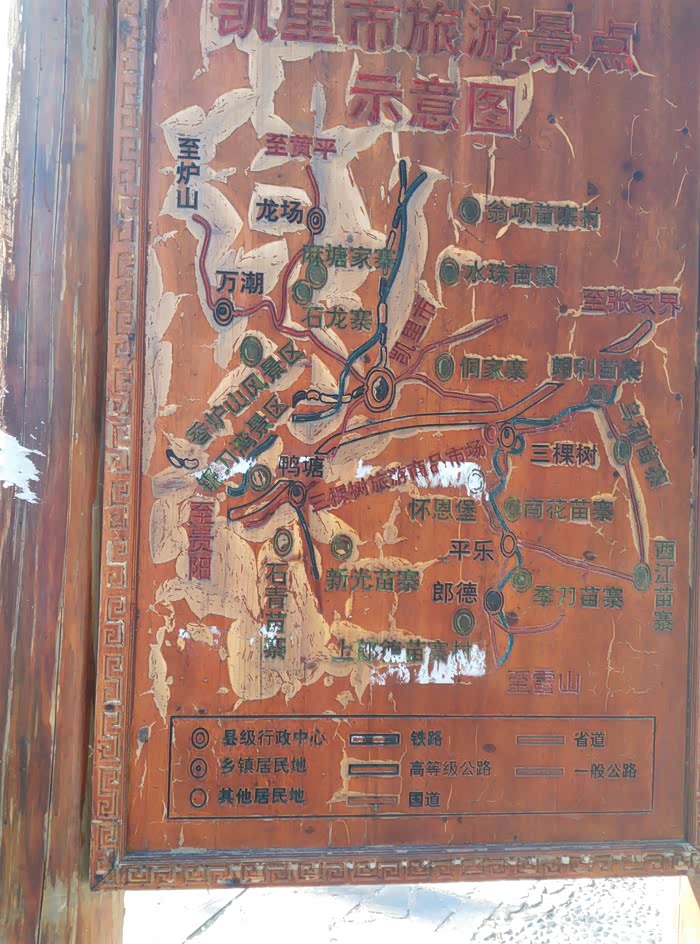 凯里市旅游景点
示意图
至黄平
至炉山
龙场
翁项苗寨村
麻塘家寨
水珠苗寨
万潮
至张家界
石龙寨
凯里市
香炉山风景区
侗家寨
朗利苗寨
鸭塘
三棵树
三棵树旅游商品市场
至贵阳
怀恩堡
南花苗寨
平乐
西江苗寨
石青苗寨
新光苗寨
郎德
季刀苗寨
至雷山
县级行政中心
铁路
省道
乡镇居民地
高等级公路
一般公路
其他居民地
国道